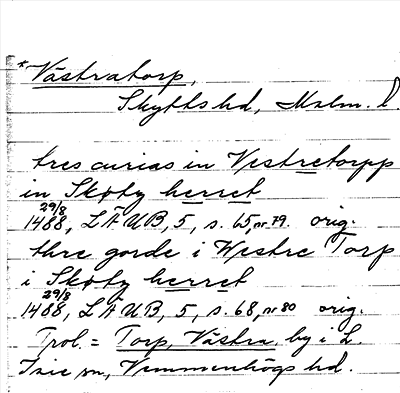 *Västratorp,
Skytts hd, Malm. l.
tres curias in Vestretorpp
in Skøty herret
29/8
1488, LÄUB, 5, s. 65, nr 79. orig.
thre gorde i Westre Torp
i Skøty herret
29/8
1488, LÄUB, 5, s. 68, nr 80 orig.
Trol. = Torp, Västra, by i L.
Isie sn, Vemmenhögs hd.